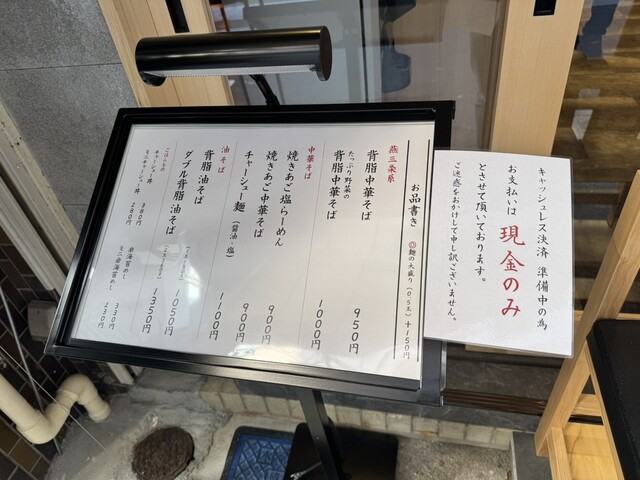 お品書き
◎麺の大盛り(0.5玉)+150円
燕三条系
背脂中華そば 950円
たっぷり野菜の
背脂中華そば 1000円
中華そば
焼きあご塩らーめん 900円
焼きあご中華そば 900円
チャーシュー麺(醤油・塩) 1100円
油そば
背脂油そば 1050円
ダブル背脂油そば 1350円
ごはんもの
チャーシュー丼 380円
ミニチャーシュー丼 280円
岩海苔めし 330円
ミニ岩海苔めし 230円
キャッシュレス決済 準備中の為
お支払いは 現金のみ
とさせて頂いております。
ご迷惑をおかけして申し訳ございません。